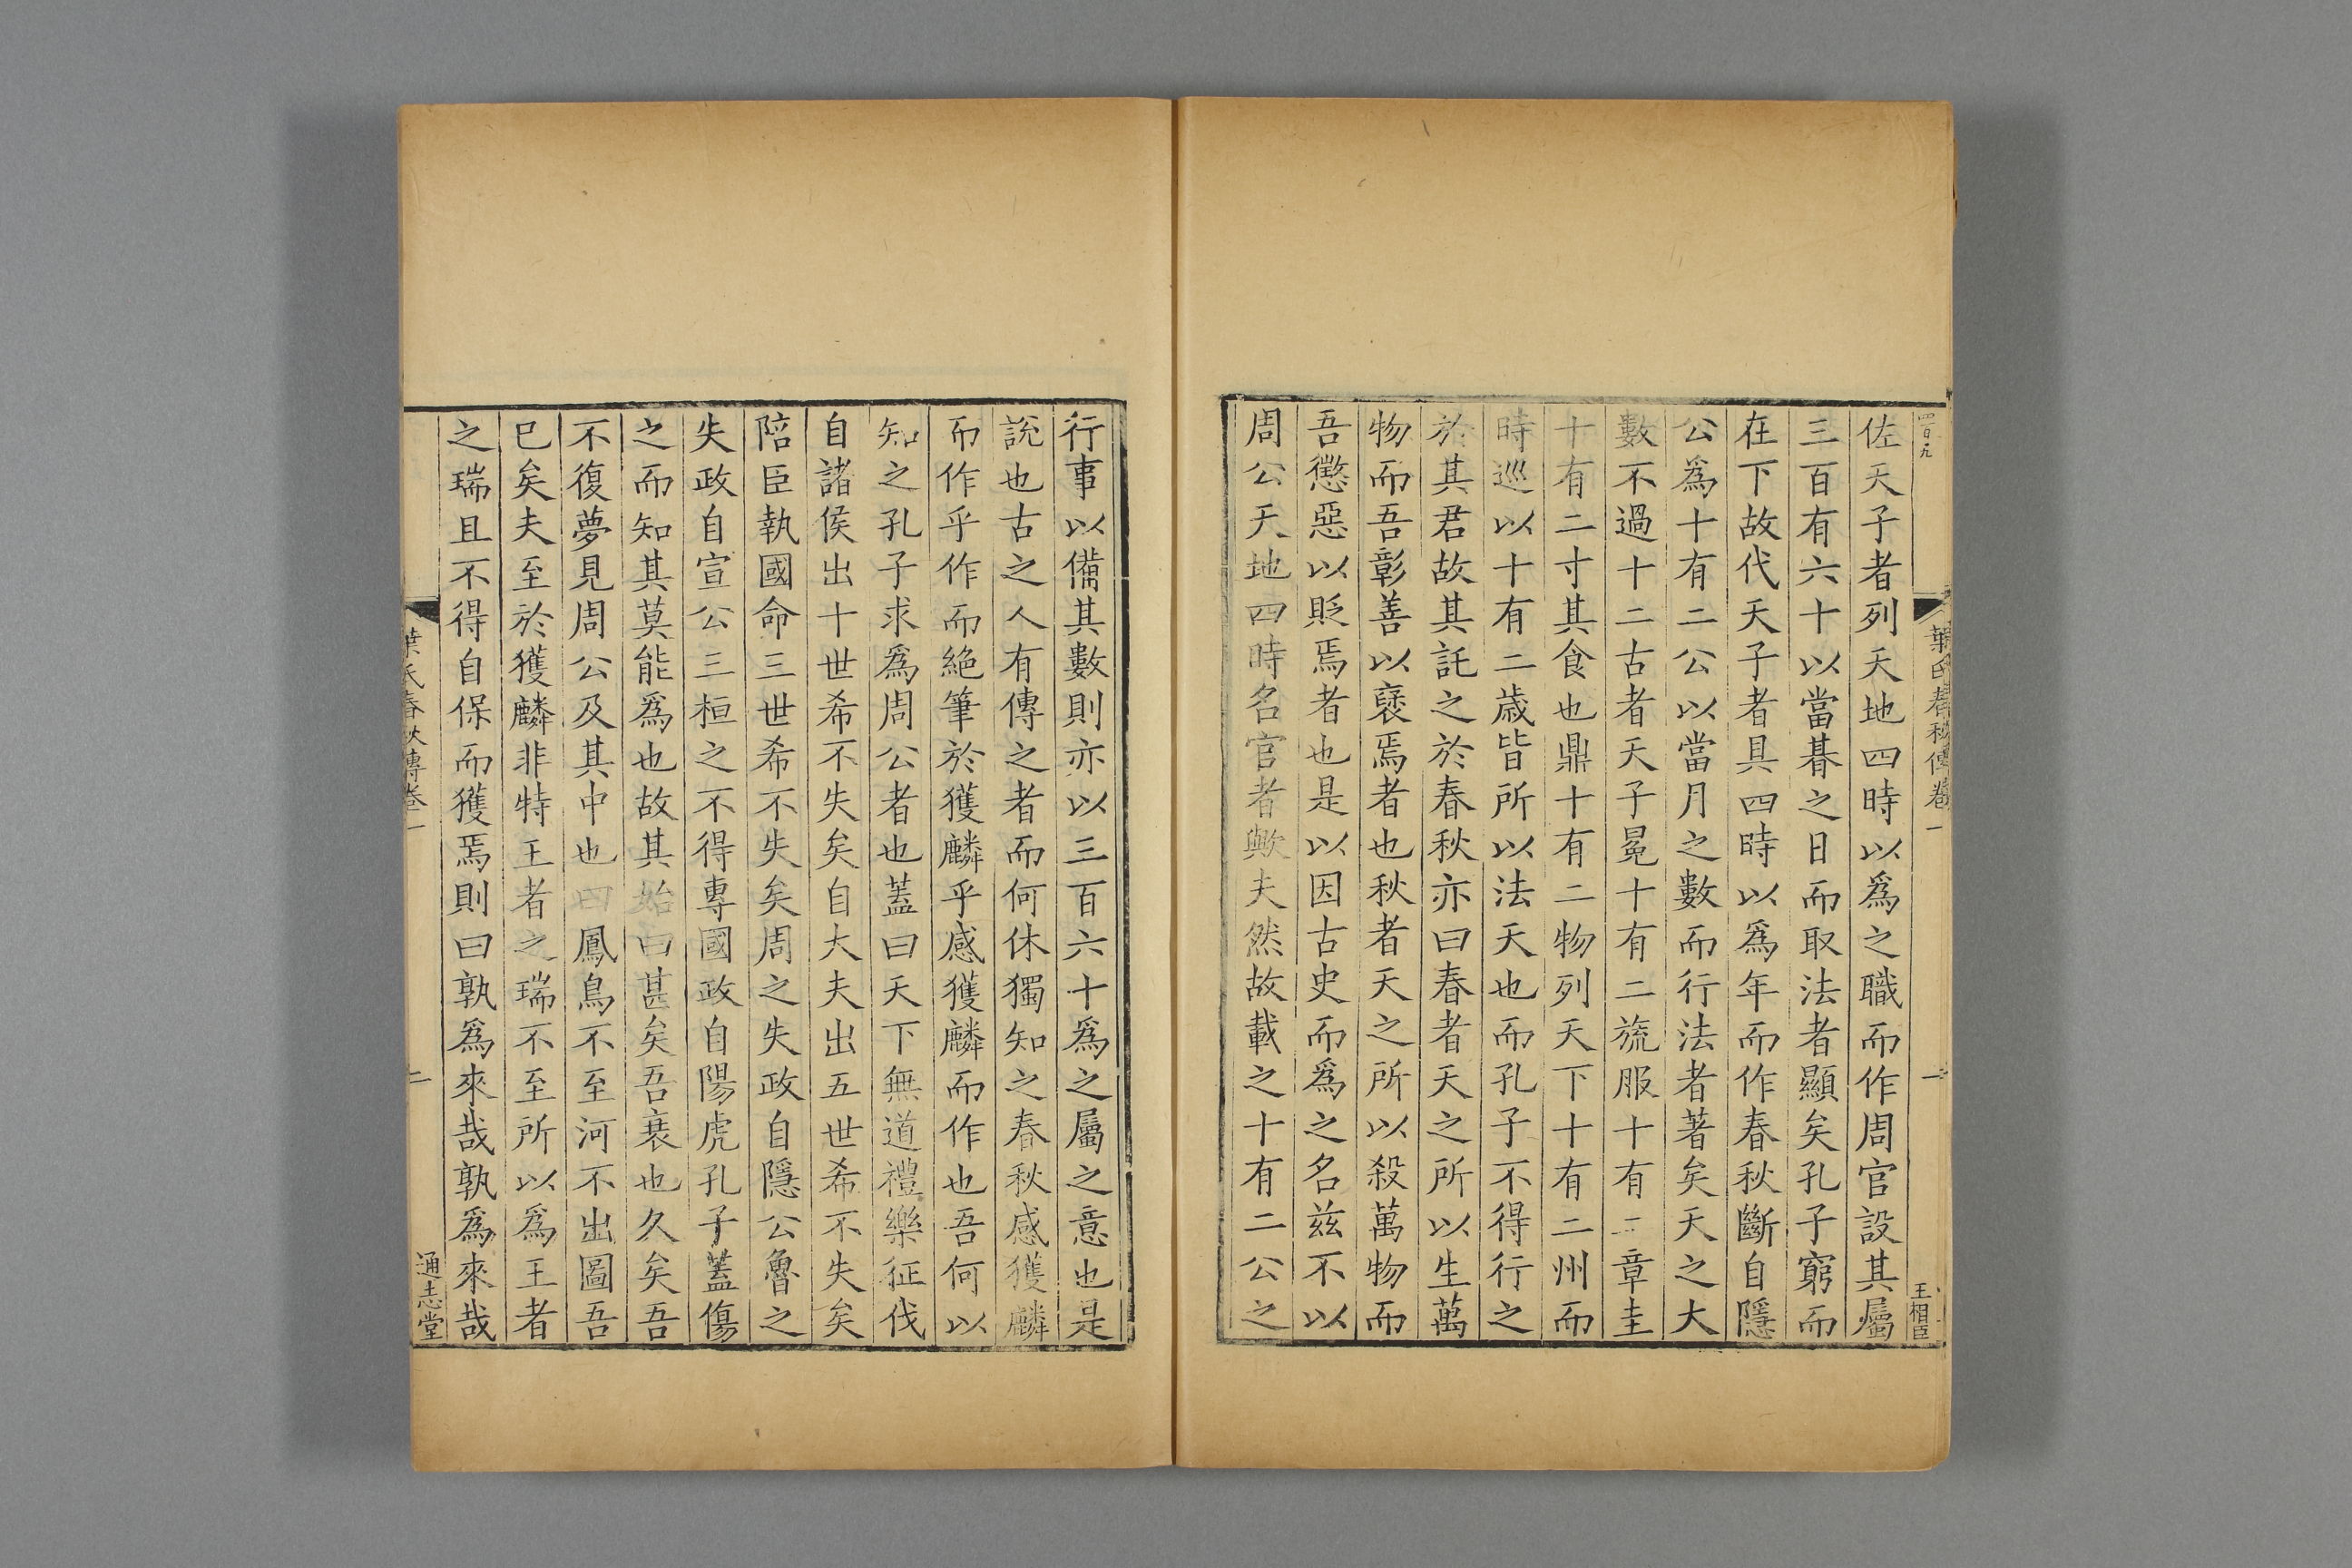 四百九
葉氏春秋傳卷一
一
王相臣
佐天子者列天地四時以爲之職而作周官設其屬
三百有六十以當朞之日而取法者顯矣孔子窮而
在下故代天子者具四時以爲年而作春秋斷自隱
公爲十有二公以當月之數而行法者著矣天之大
數不過十二古者天子冕十有二旒服十有二章圭
十有二寸其食也鼎十有二物列天下十有二州而
時巡以十有二歳皆所以法天也而孔子不得行之
於其君故其託之於春秋亦曰春者天之所以生萬
物而吾彰善以襃焉者也秋者天之所以殺萬物而
吾懲惡以貶焉者也是以因古史而爲之名兹不以
周公天地四時名官者歟夫然故載之十有二公之
行事以備其數則亦以三百六十爲之屬之意也是
說也古之人有傳之者而何休獨知之春秋感獲麟
而作乎作而絶筆於獲麟乎感獲麟而作也吾何以
知之孔子求爲周公者也蓋曰天下無道禮樂征伐
自諸侯出十世希不失矣自大夫出五世希不失矣
陪臣執國命三世希不失矣周之失政自隱公魯之
失政自宣公三桓之不得專國政自陽虎孔子蓋傷
之而知其莫能爲也故其始曰甚矣吾衰也久矣吾
不復夢見周公及其中也曰鳳鳥不至河不出圖吾
巳矣夫至於獲麟非特王者之瑞不至所以爲王者
之瑞且不得自保而獲焉則曰孰爲來哉孰爲來哉
葉氏春秋傳卷一
二
通志堂